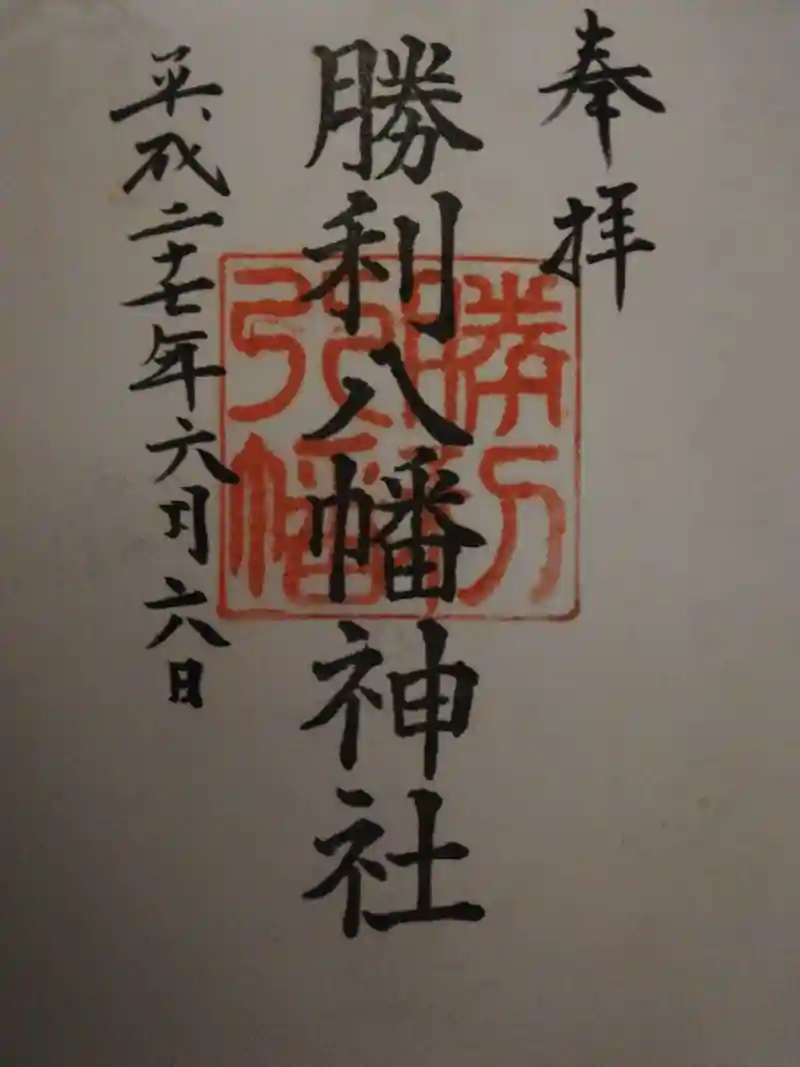 奉拝
勝利八幡神社
平成二十七年六月六日